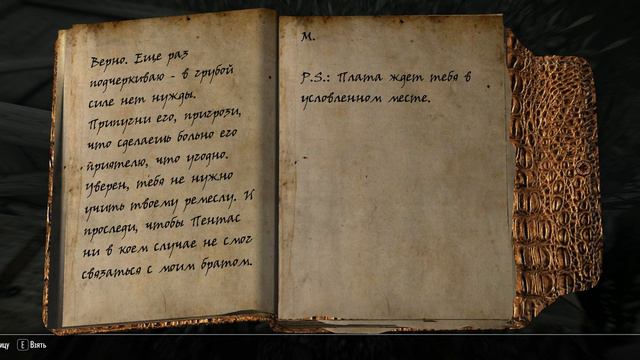 Верно. Еще раз
подчеркиваю - в грубой
силе нет нужды.
Припугни его, пригрози,
что сделаешь больно его
приятелю, что угодно.
Уверен, тебя не нужно
учить твоему ремеслу. И
проследи, чтобы Пентас
ни в коем случае не смог
связаться с моим братом.
М.
P.S.: Плата ждет тебя в
условленном месте.
цу E Взять